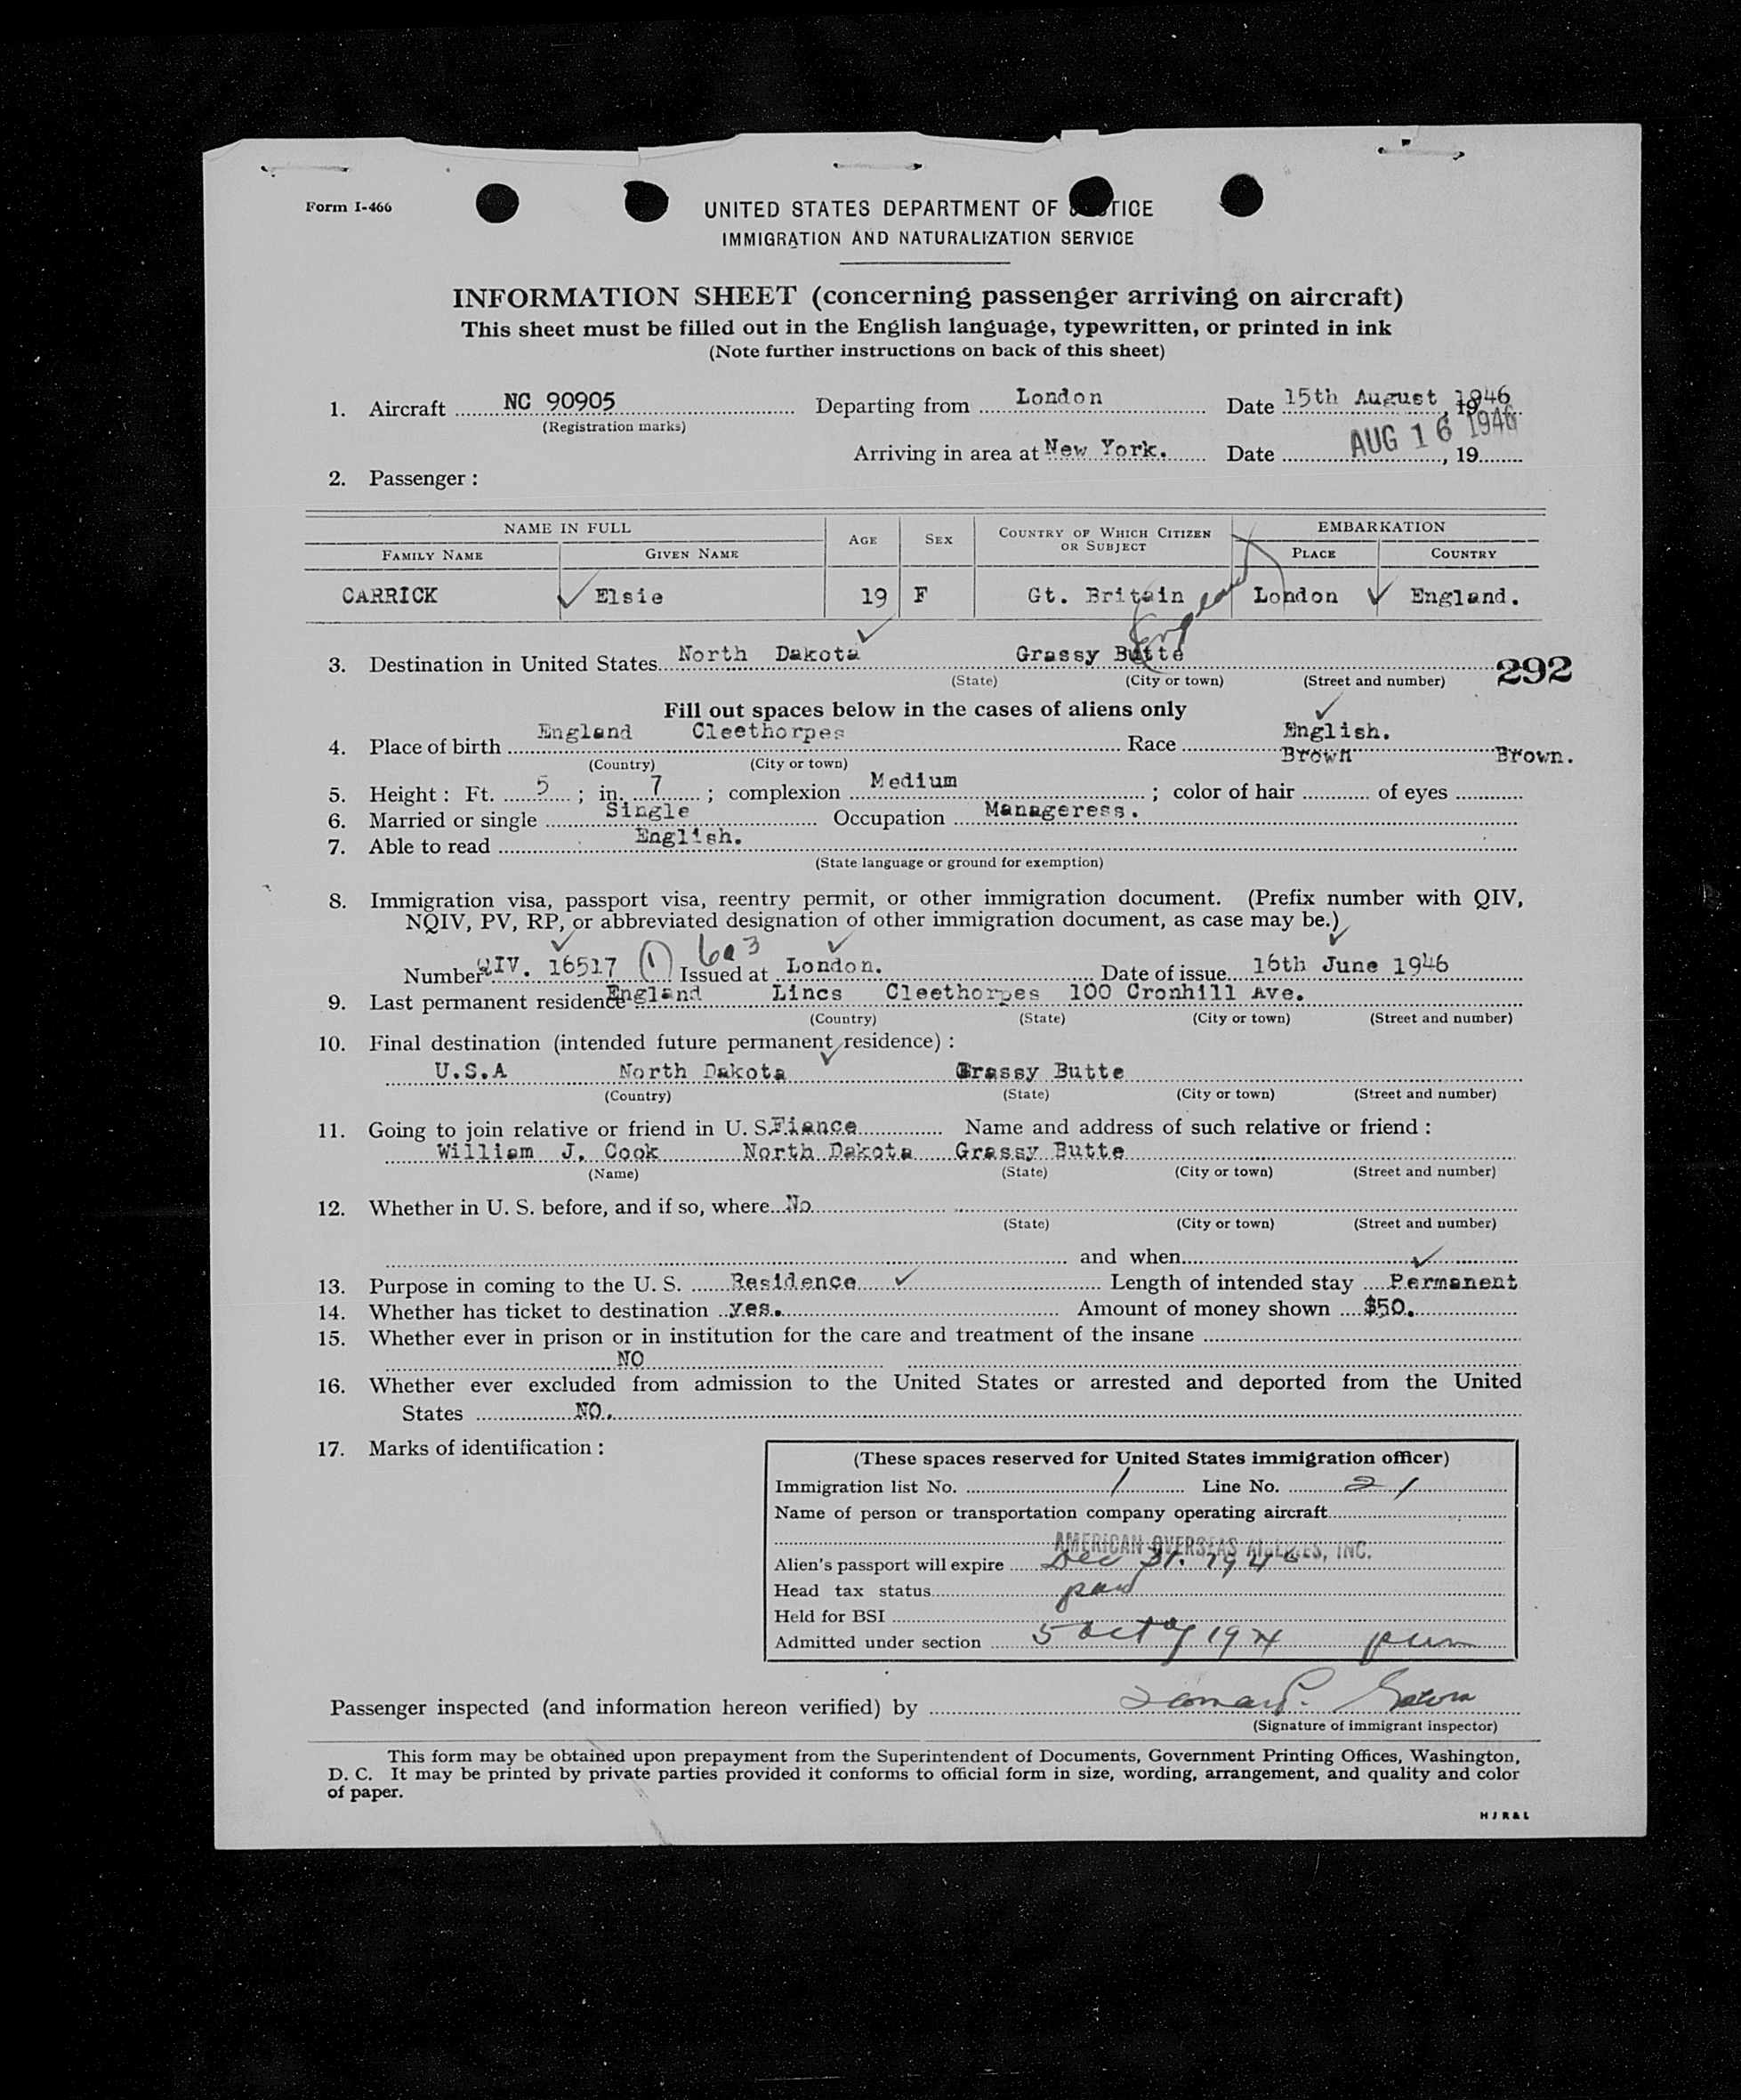 Form I-466
UNITED STATES DEPARTMENT OF JUSTICE
IMMIGRATION AND NATURALIZATION SERVICE
INFORMATION SHEET (concerning passenger arriving on aircraft)
This sheet must be filled out in the English language, typewritten, or printed in ink
(Note further instructions on back of this sheet)
1. Aircraft NC 90905 Departing from London Date 15th August, 1946
(Registration marks)
Arriving in area at New York. Date AUG 16 1946, 19
2. Passenger :
NAME IN FULL AGE SEX COUNTRY OF WHICH CITIZEN OR SUBJECT EMBARKATION
FAMILY NAME GIVEN NAME PLACE COUNTRY
CARRICK ✓ Elsie 19 F Gt. Britain London ✓ England.
England
3. Destination in United States North Dakota Grassy Butte 292
(State) (City or town) (Street and number)
Fill out spaces below in the cases of aliens only
4. Place of birth England Cleethorpes Race English.
(Country) (City or town)
5. Height : Ft. 5 ; in. 7 ; complexion Medium ; color of hair Brown of eyes Brown.
6. Married or single Single Occupation Manageress.
7. Able to read English.
(State language or ground for exemption)
8. Immigration visa, passport visa, reentry permit, or other immigration document. (Prefix number with QIV,
NQIV, PV, RP, or abbreviated designation of other immigration document, as case may be.)
Number QIV. 16517 (1) 6a3 Issued at London. Date of issue 16th June 1946
9. Last permanent residence England Lincs Cleethorpes 100 Cronhill Ave.
(Country) (State) (City or town) (Street and number)
10. Final destination (intended future permanent residence) :
U.S.A North Dakota Grassy Butte
(Country) (State) (City or town) (Street and number)
11. Going to join relative or friend in U. S. Fiance Name and address of such relative or friend :
William J. Cook North Dakota Grassy Butte
(Name) (State) (City or town) (Street and number)
12. Whether in U. S. before, and if so, where No
(State) (City or town) (Street and number)
and when
13. Purpose in coming to the U. S. Residence ✓ Length of intended stay Permanent
14. Whether has ticket to destination yes. Amount of money shown $50.
15. Whether ever in prison or in institution for the care and treatment of the insane
NO
16. Whether ever excluded from admission to the United States or arrested and deported from the United
States NO.
17. Marks of identification :
(These spaces reserved for United States immigration officer)
Immigration list No. 1 Line No. 21
Name of person or transportation company operating aircraft
AMERICAN OVERSEAS AIRLINES, INC.
Alien's passport will expire Dec 31. 194
Head tax status paid
Held for BSI
Admitted under section 5 act of 1924
Passenger inspected (and information hereon verified) by
(Signature of immigrant inspector)
This form may be obtained upon prepayment from the Superintendent of Documents, Government Printing Offices, Washington,
D. C. It may be printed by private parties provided it conforms to official form in size, wording, arrangement, and quality and color
of paper.
H J R & L